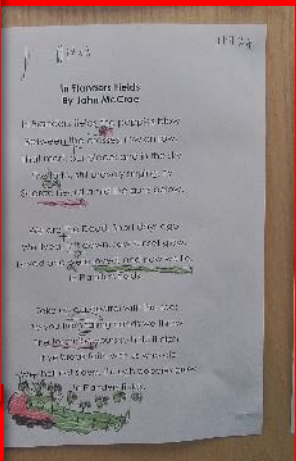 In Flanders Fields
By John McCrae
In Flanders fields the poppies blow
Between the crosses, row on row,
That mark our place; and in the sky
The larks, still bravely singing, fly
Scarce heard amid the guns below.
We are the Dead. Short days ago
We lived, felt dawn, saw sunset glow,
Loved and were loved, and now we lie,
In Flanders fields.
Take up our quarrel with the foe:
To you from failing hands we throw
The torch; be yours to hold it high.
If ye break faith with us who die
We shall not sleep, though poppies grow
In Flanders fields.